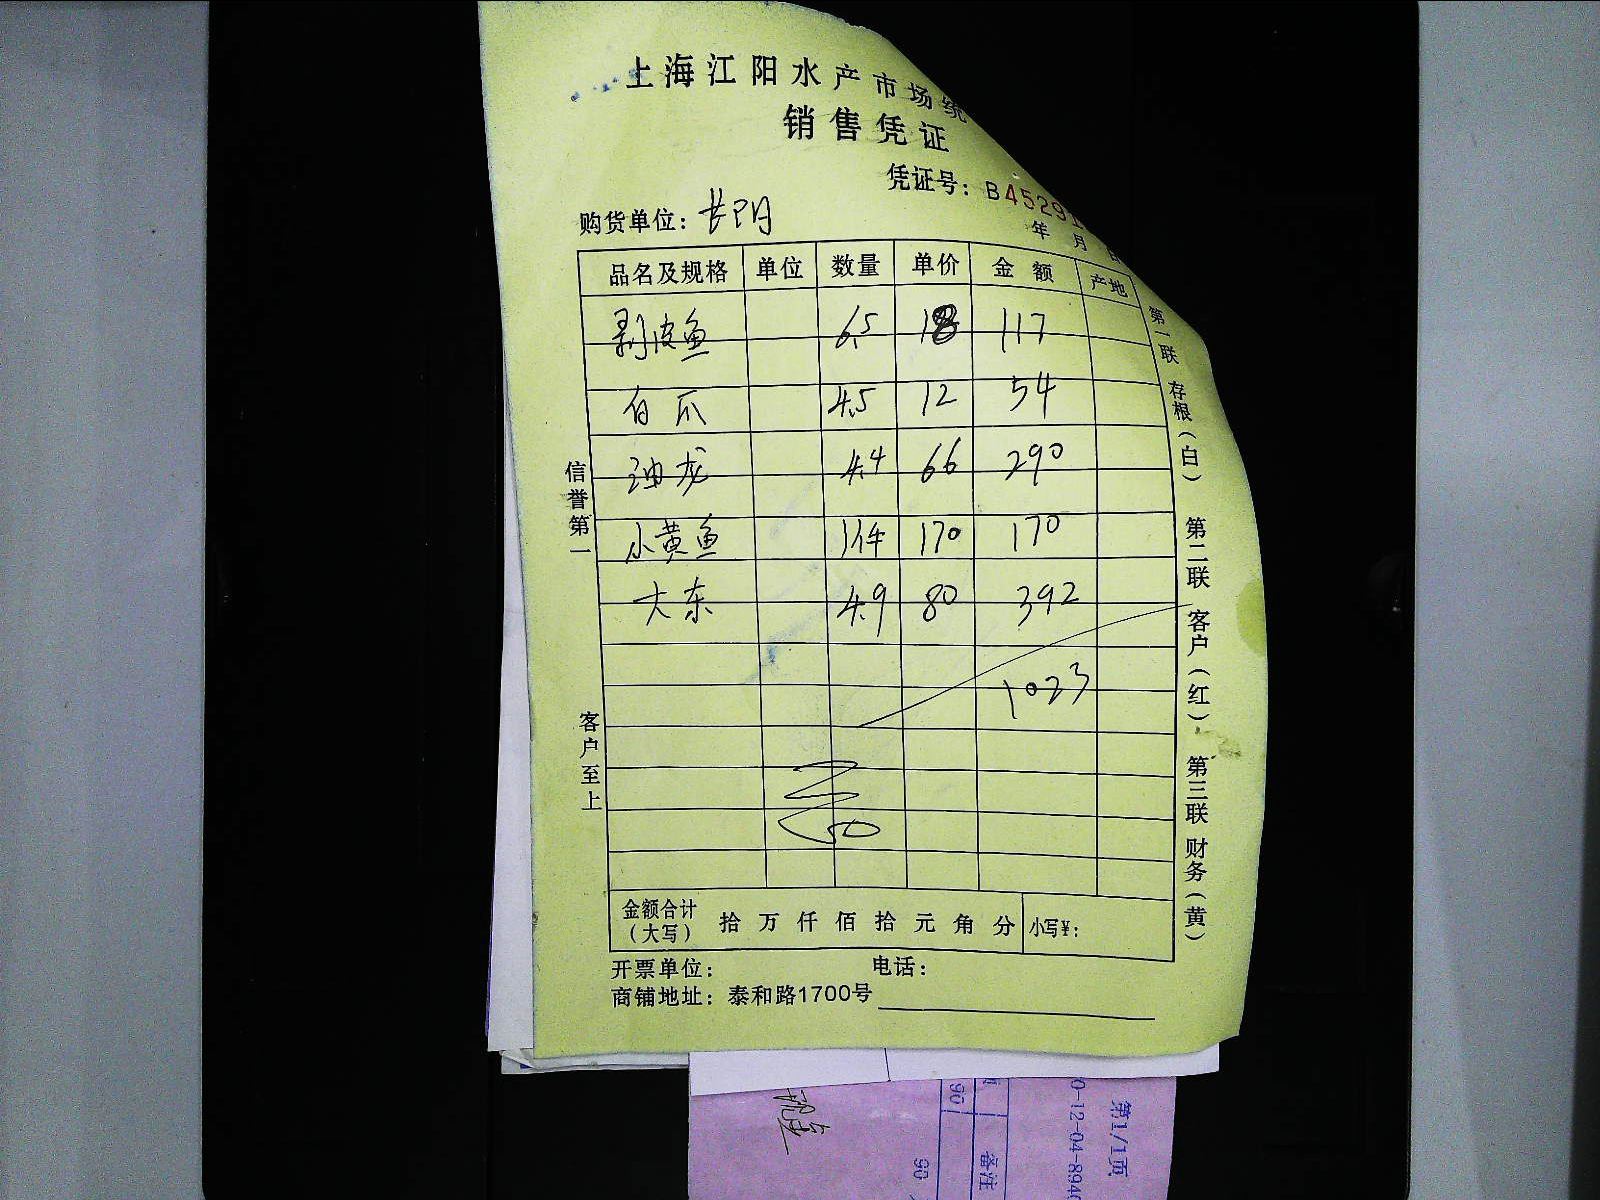 上海江阳水产市场统
销售凭证
凭证号：B45291
购货单位：长阳
年 月 日
品名及规格 单位 数量 单价 金额 产地
剥皮鱼 6.5 18 117
白爪 4.5 12 54
油龙 4.4 66 290
小黄鱼 1件 170 170
大东 4.9 80 392
1023
金额合计（大写） 拾 万 仟 佰 拾 元 角 分 小写¥：
开票单位： 电话：
商铺地址：泰和路1700号
信誉第一
客户至上
第一联 存根（白） 第二联 客户（红） 第三联 财务（黄）
第1/1页
0-12-04-894
备注
90
90